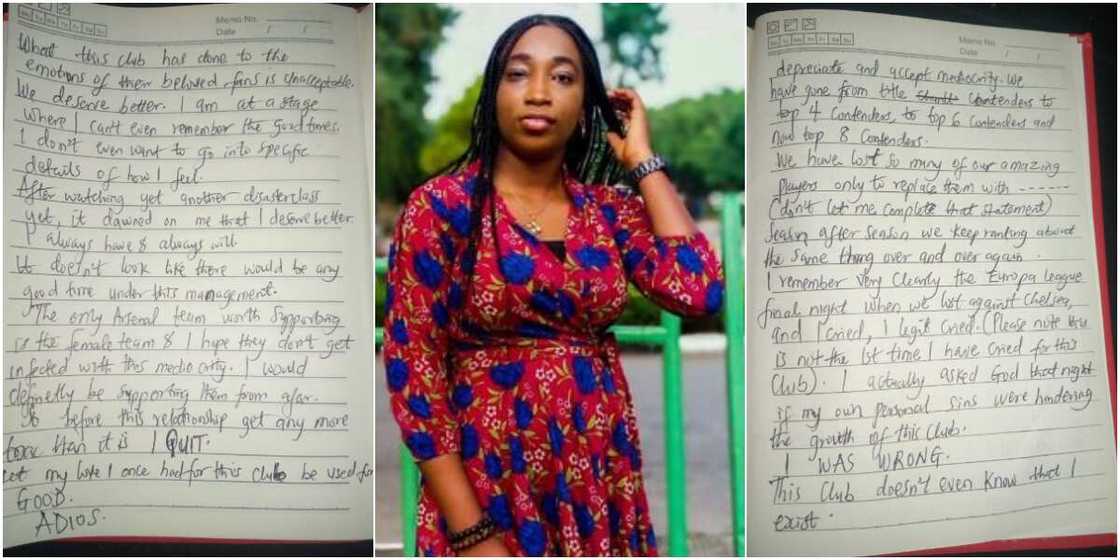 Memo No.
Mo Tu We Th Fr Sa Su
Date / /
What this club has done to the
emotions of their beloved fans is Unacceptable.
We deserve better. I am at a stage
where I can't even remember the good times.
I don't even want to go into specific
details of how I feel.
After watching yet another disasterclass
yet, it dawned on me that I deserve better.
I always have & always will.
It doesn't look like there would be any
good time under this management.
The only Arsenal team worth supporting
is the female team & I hope they don't get
infected with this mediocrity. I would
definetly be supporting them from afar.
So before this relationship get any more
toxic than it is I QUIT.
Let my love I once had for this club be used for
GOOD.
ADIOS.
Memo No.
Mo Tu We Th Fr Sa Su
Date / /
depreciate and accept mediocrity. We
have gone from title contenders to
top 4 contenders, to top 6 contenders and
now top 8 contenders.
We have lost so many of our amazing
players only to replace them with ------
(don't let me complete that statement)
Season after season we keep ranting about
the same thing over and over again.
I remember very clearly the Europa league
final night when we lost against Chelsea,
and I cried, I legit cried. (Please note this
is not the 1st time I have cried for this
club). I actually asked God that night
if my own personal sins were hindering
the growth of this club.
I WAS WRONG.
This club doesn't even know that I
exist.